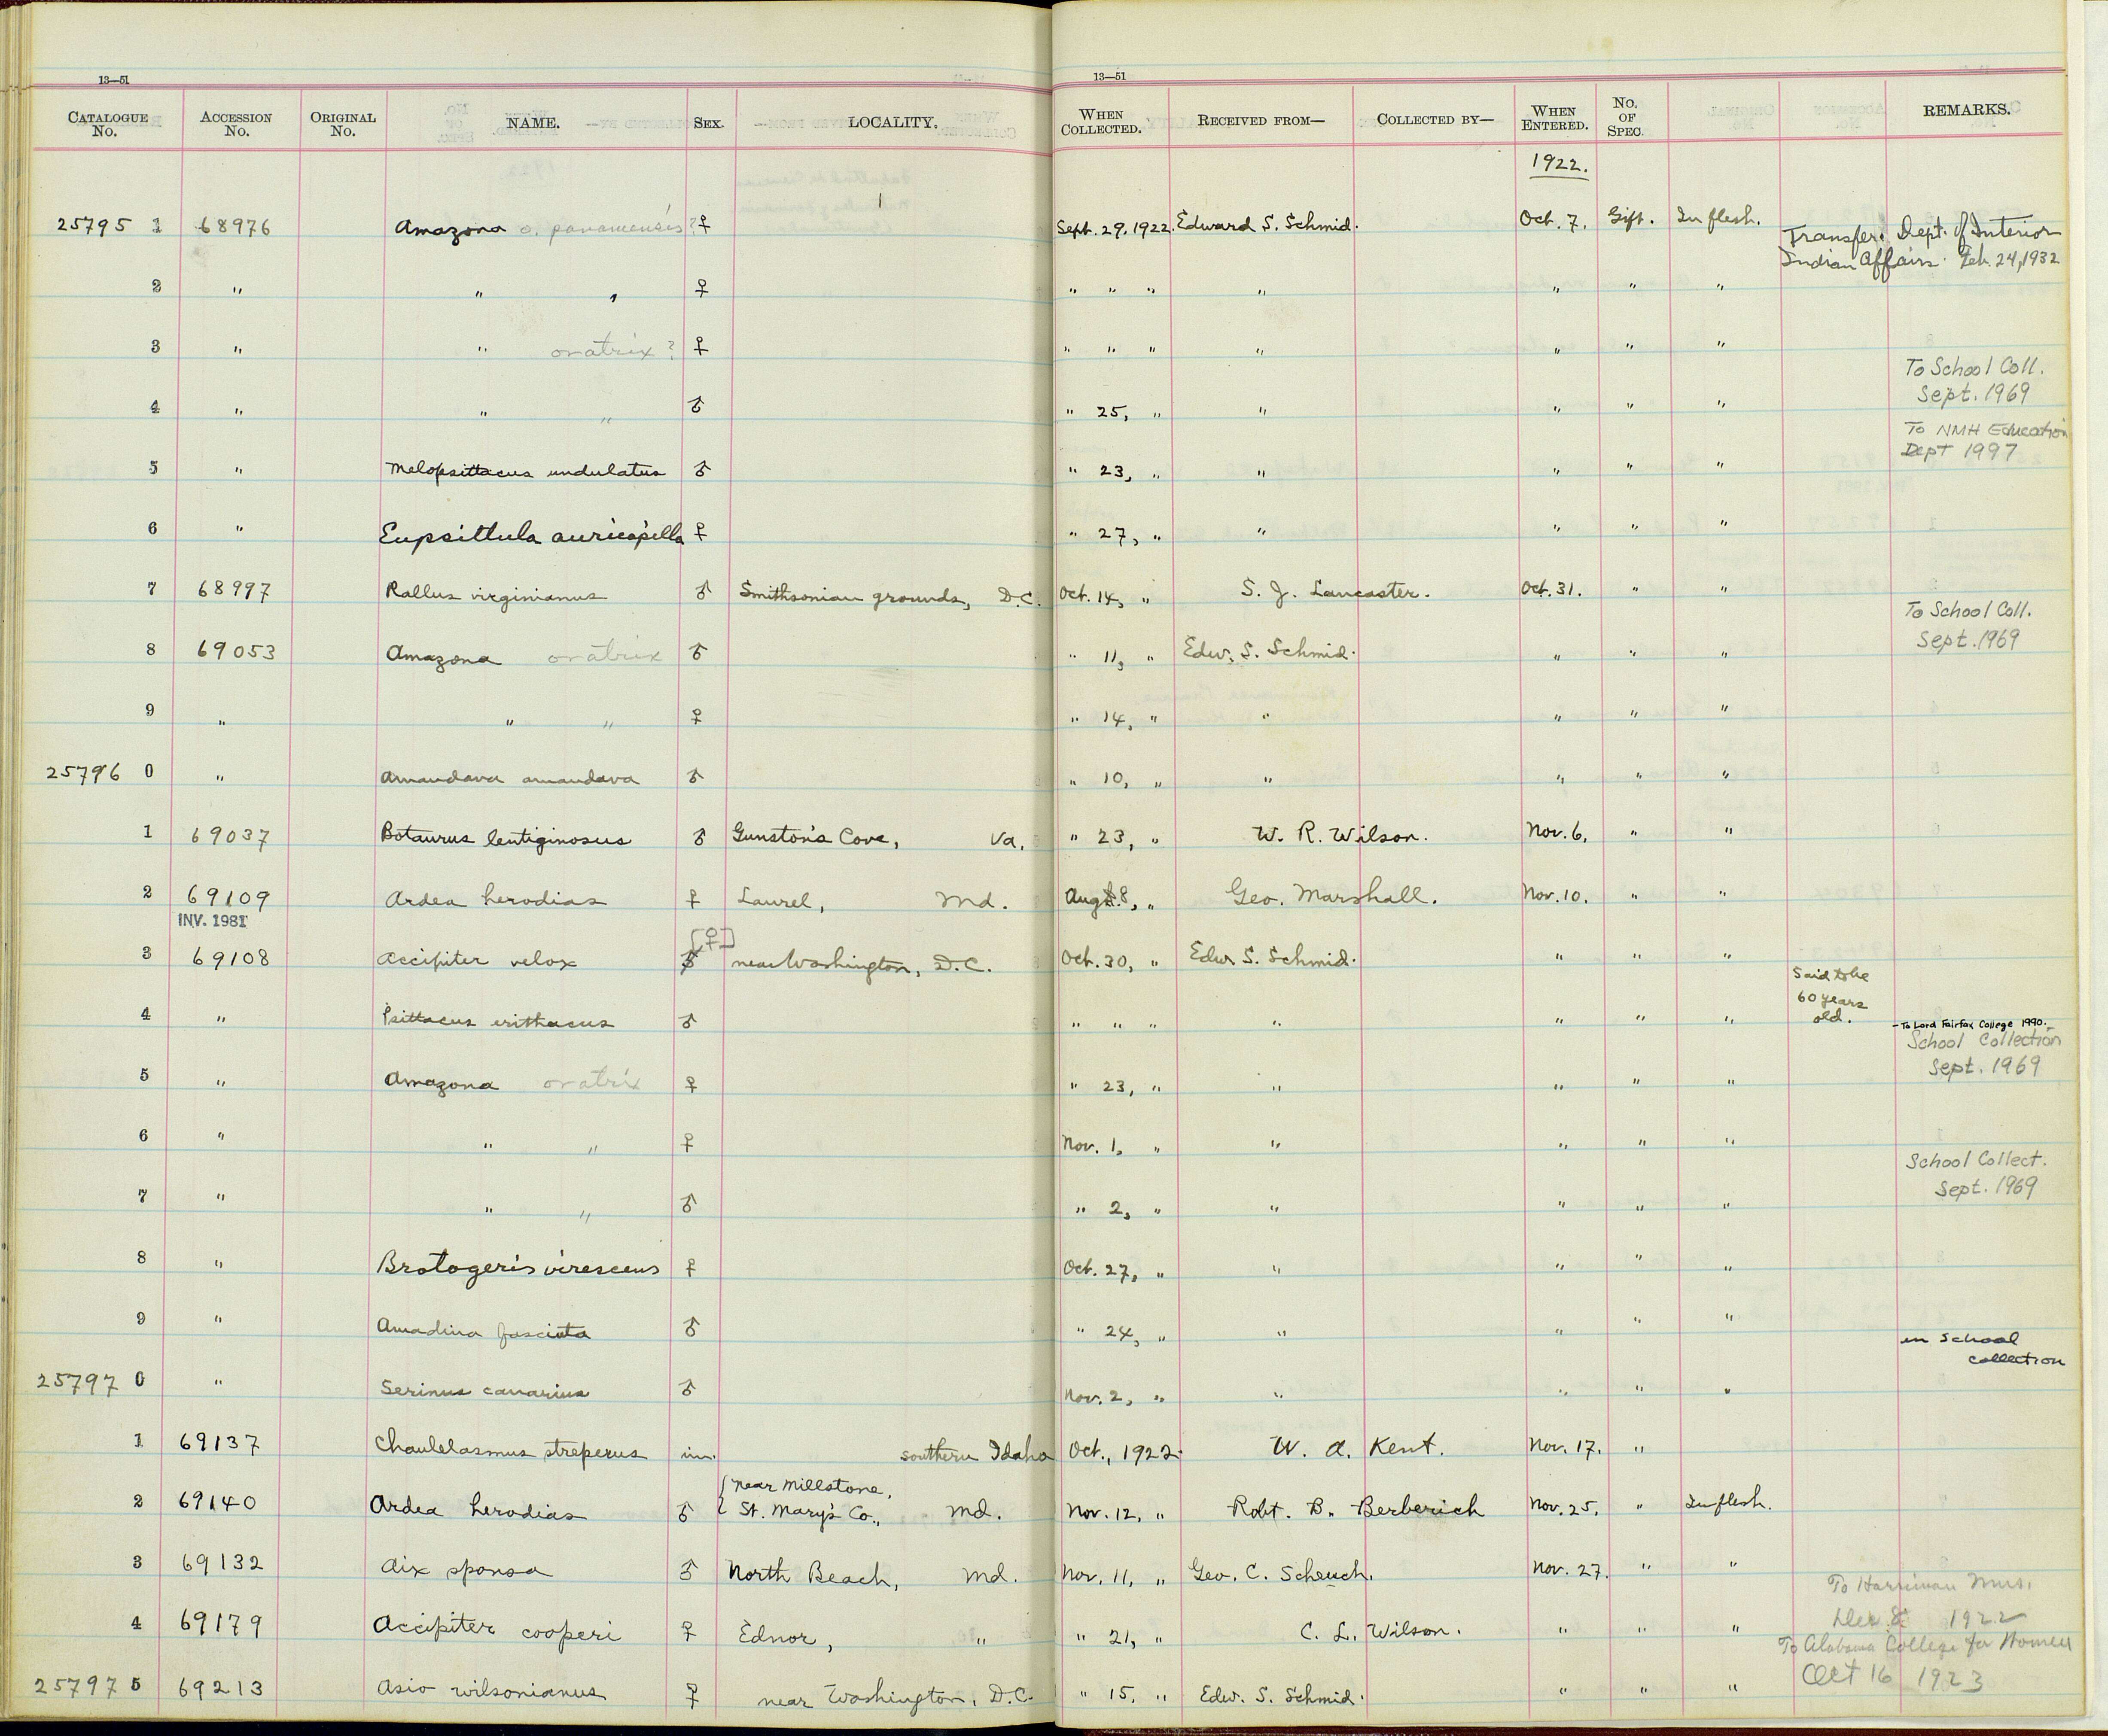 13—51
13—51
CATALOGUE No. ACCESSION No. ORIGINAL No. NAME. SEX. LOCALITY. WHEN COLLECTED. RECEIVED FROM— COLLECTED BY— WHEN ENTERED. No. OF SPEC. REMARKS.
1922.
25795 1 68976 Amazona o. panamensis? ♀ Sept. 29, 1922. Edward S. Schmid. Oct. 7. Gift. In flesh. Transfer. Dept. of Interior
Indian Affairs. Feb. 24, 1932
2 " " " ♀ " " " " " " "
3 " " oratrix ? ♀ " " " " " " "
To School Coll.
Sept. 1969
4 " " " ♂ " 25, " " " " "
To NMH Education
Dept 1997
5 " Melopsittacus undulatus ♂ " 23, " " " " "
6 " Eupsittula auricapilla ♀ " 27, " " " " "
7 68997 Rallus virginianus ♂ Smithsonian grounds, D.C. Oct. 14, " S. J. Lancaster. Oct. 31. " "
To School Coll.
Sept. 1969
8 69053 Amazona oratrix ♂ " 11, " Edw. S. Schmid. " " "
9 " " " ♀ " 14, " " " " "
25796 0 " Amandava amandava ♂ " 10, " " " " "
1 69037 Botaurus lentiginosus ♂ Gunston's Cove, Va. " 23, " W. R. Wilson. Nov. 6. " "
2 69109 Ardea herodias ♀ Laurel, Md. Aug. 8, " Geo. Marshall. Nov. 10. " "
INV. 1981
[♀]
3 69108 Accipiter velox ♂ near Washington, D.C. Oct. 30, " Edw. S. Schmid. " " "
Said to be
60 years
old.
4 " Psittacus erithacus ♂ " " " " " " "
- To Lord Fairfax College 1990.
School Collection
Sept. 1969
5 " Amazona oratrix ♀ " 23, " " " " "
6 " " " ♀ Nov. 1, " " " " "
School Collect.
Sept. 1969
7 " " " ♂ " 2, " " " " "
8 " Brotogeris virescens ♀ Oct. 27, " " " " "
9 " Amadina fasciata ♂ " 24, " " " " "
in School
collection
25797 0 " Serinus canarius ♂ Nov. 2, " " " " "
1 69137 Chaulelasmus streperus im. southern Idaho Oct., 1922. W. A. Kent. Nov. 17. "
near Millstone,
2 69140 Ardea herodias ♂ St. Mary's Co., Md. Nov. 12, " Robt. B. Berberich Nov. 25. " In flesh.
3 69132 Aix sponsa ♂ North Beach, Md. Nov. 11, " Geo. C. Scheuch. Nov. 27. " "
To Harriman Mus.
Dec. 8 1922
4 69179 Accipiter cooperi ♀ Ednor, " " 21, " C. L. Wilson. " " "
To Alabama College for Women
Oct 16 1923
25797 5 69213 Asio wilsonianus ♀ near Washington, D.C. " 15, " Edw. S. Schmid. " " "